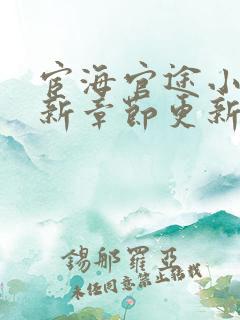 宦海官途小
新章节更新
錫那羅亞
未经同意禁止转载